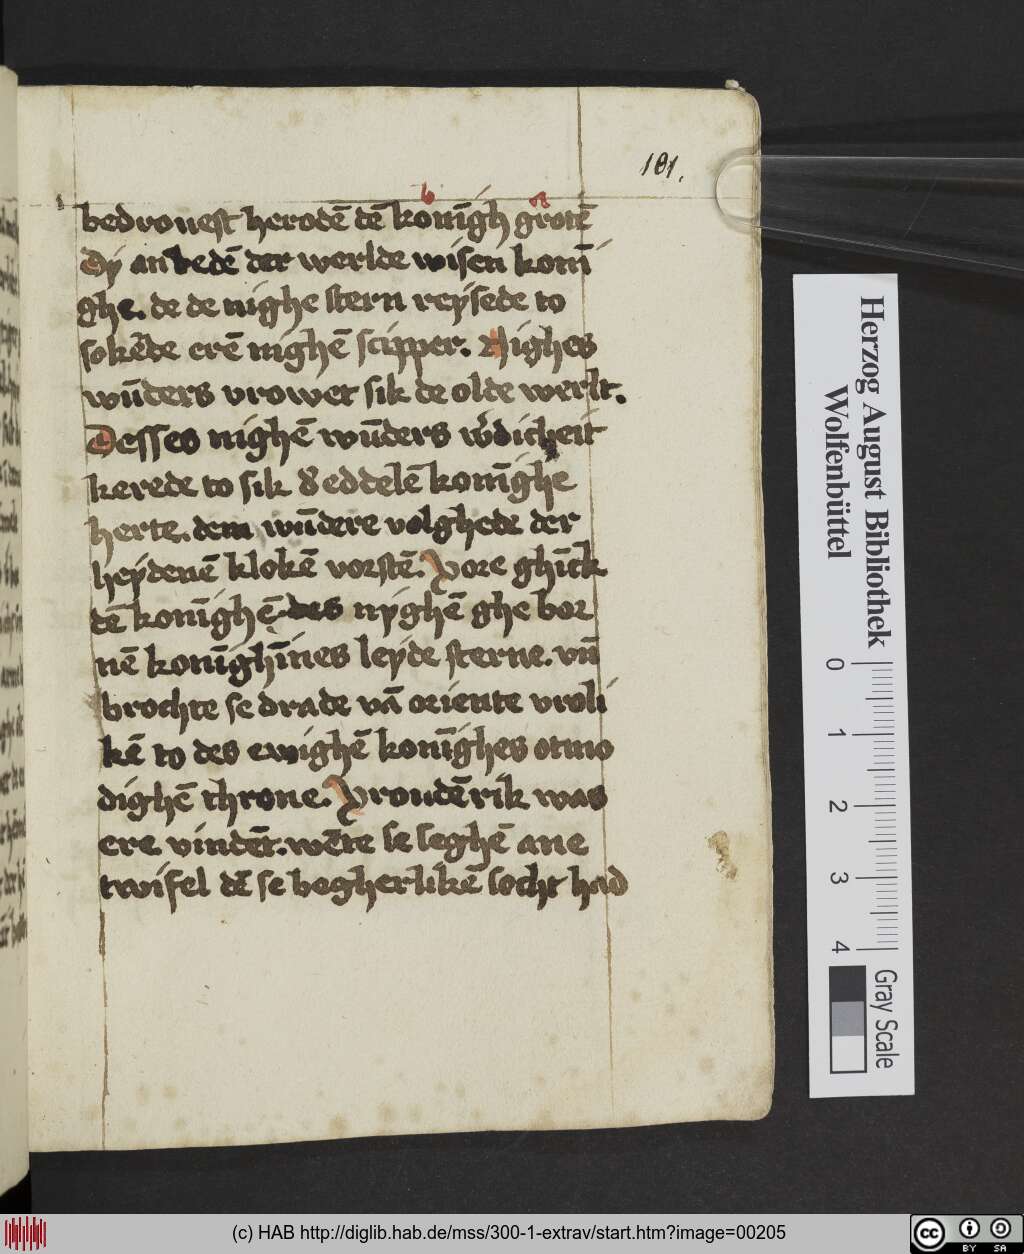 181.
b a
bedrouest herodē dē konīgh grotē
Dÿ an bedē der werlde wisen konī
ghe. de de nighe stern reÿsede to
sokēde erē nighē scipper. Nighes
wūders vrowet sik de olde werlt.
Desses nighē wūders w̓dicheit
kerede to sik d̓ eddelē konīghe
herte. dem wūdere volghede der
heÿdenē klokē vorstē. Vore ghīck
dē konīghē des nÿghē ghe bor
nē konīghīnes leÿde sterne. vn̄
brochte se drade vā oriente vroli
kē to des ewighē konīghes otmo
dighē throne. Vroudē rik was
ere vindēt. wēte se seghē ane
twifel dē se begherlikē socht had
Herzog August Bibliothek
Wolfenbüttel
0 1 2 3 4
Gray Scale
(c) HAB http://diglib.hab.de/mss/300-1-extrav/start.htm?image=00205
cc BY SA